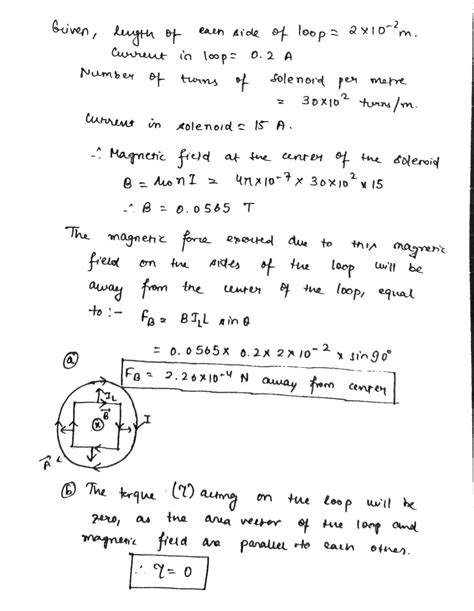 Given, length of each side of loop = 2×10⁻² m.
Current in loop = 0.2 A
Number of turns of solenoid per metre
= 30×10² turns/m.
Current in solenoid = 15 A.
∴ Magnetic field at the center of the solenoid
B = μ₀ n I = 4π×10⁻⁷ × 30×10² × 15
∴ B = 0.0565 T
The magnetic force exerted due to this magnetic
field on the sides of the loop will be
away from the center of the loop, equal
to :- F_B = B I_L L sin θ
= 0.0565 × 0.2 × 2×10⁻² × sin 90°
(a) F_B = 2.26×10⁻⁴ N away from center
I_L
B
I
A
(b) The torque (τ) acting on the loop will be
zero, as the area vector of the loop and
magnetic field are parallel to each other.
∴ τ = 0